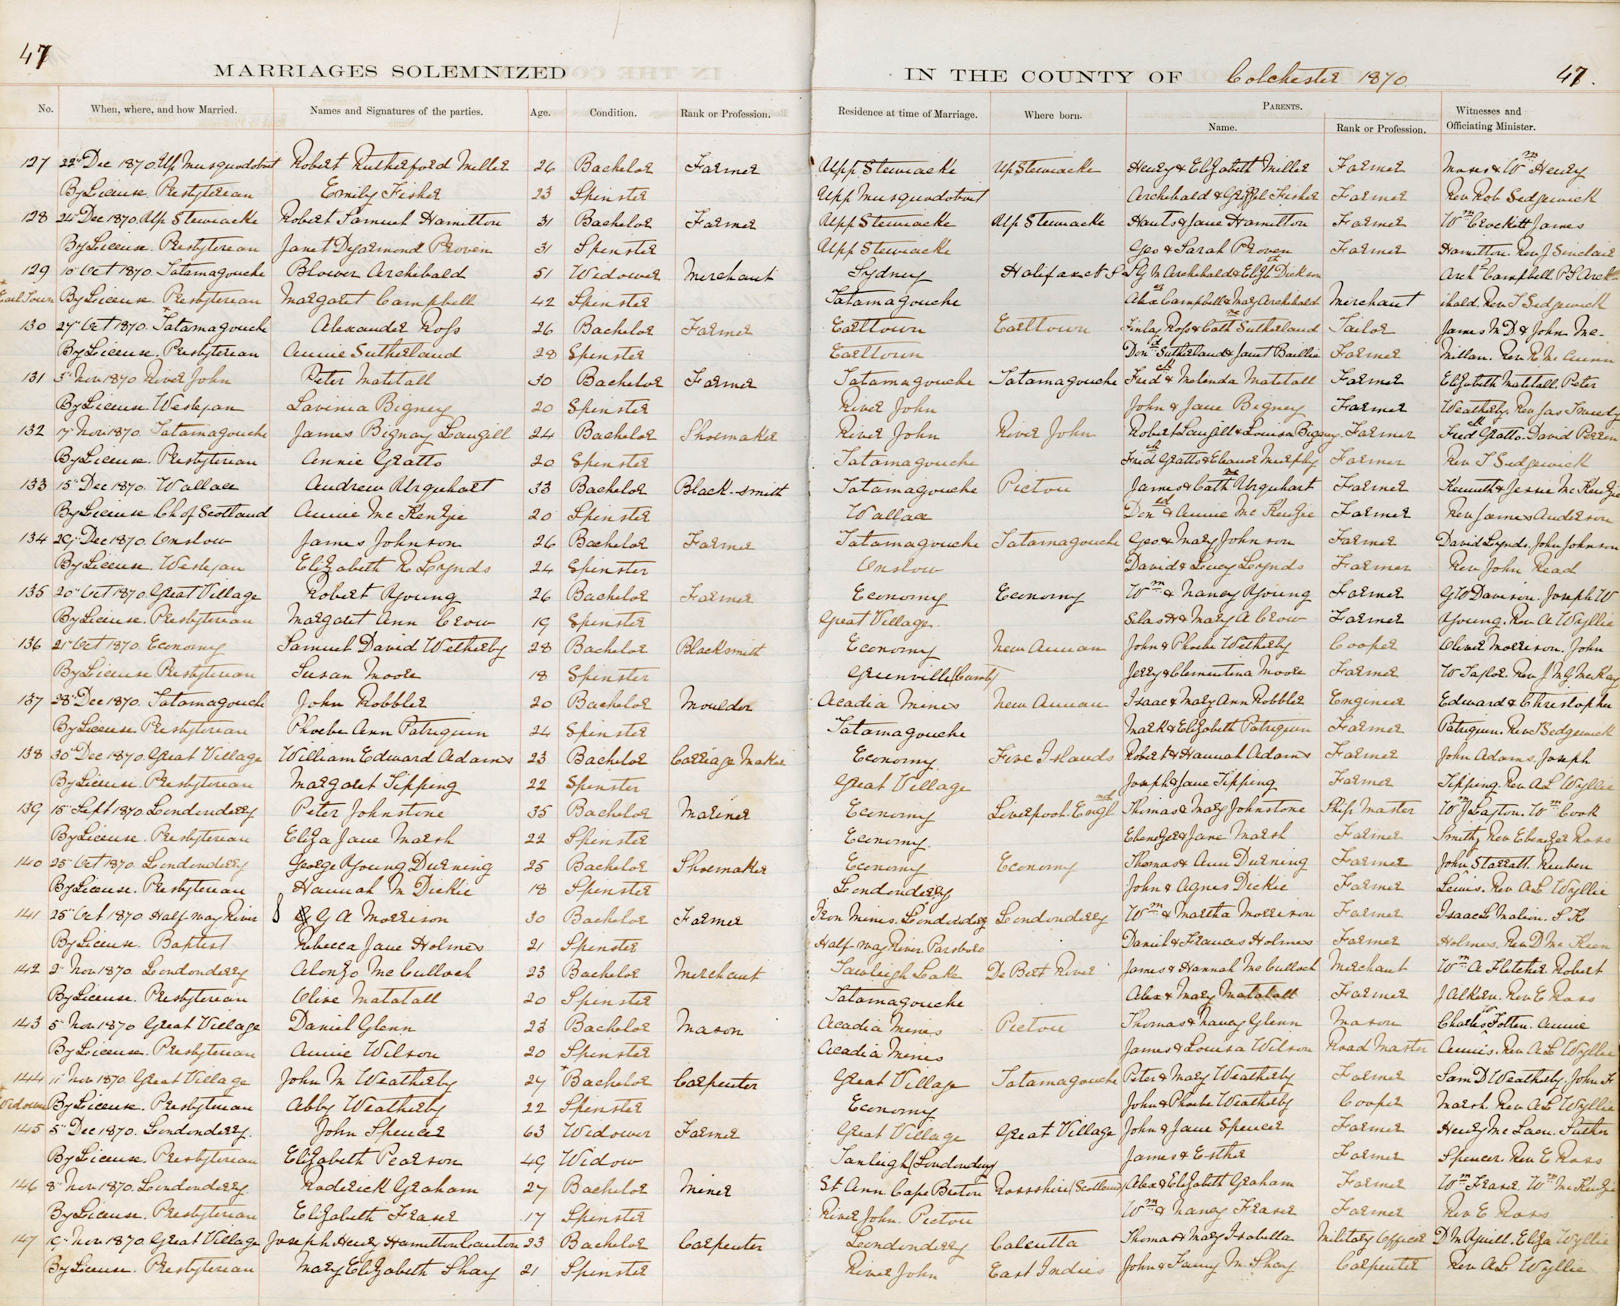 47
MARRIAGES SOLEMNIZED IN THE COUNTY OF Colchester 1870. 47.
No. When, where, and how Married. Names and Signatures of the parties. Age. Condition. Rank or Profession. Residence at time of Marriage. Where born. PARENTS. Name. Rank or Profession. Witnesses and Officiating Minister.
127 22nd Dec 1870. Up Musquodobit Robert Rutherford Miller 26 Bachelor Farmer Upp Stewiacke Up Stewiacke Henry & Elizabeth Miller Farmer & Wm Henry
By License. Presbyterian Emily Fisher 23 Spinster Upp Musquodobut Archebald & Fisher Farmer Rev Rob Sedgewick
128 24 Dec 1870. Upp Stewiacke Robert Samuel Hamilton 31 Bachelor Farmer Upp Stewiacke Upp Stewiacke & Jane Hamilton Farmer Wm Crockett James
By License. Presbyterian Janet Proven 31 Spinster Upp Stewiacke Geo & Sarah Proven Farmer Hamilton. Rev J Sinclair
129 10 Oct 1870. Tatamagouche Blower Archebald 51 Widower Merchant Sydney Halifax N S S G W Archebald & Elizth Dickson Campbell P S Arch-
Earl Town By License. Presbyterian Margaret Campbell 42 Spinster Tatamagouche Alex Campbell & Mary Archebald Merchant ibald. Rev T Sedgewick
130 27 Oct 1870. Tatamagouche Alexander Ross 26 Bachelor Farmer Earltown Earltown Finlay Ross & Cathne Sutherland Tailor James M D & John Mc-
By License. Presbyterian Annie Sutherland 28 Spinster Earltown Dond Sutherland & Janet Baillie Farmer Millan. Rev R Mc Cunn
131 3 Nov 1870 River John Peter Matitall 30 Bachelor Farmer Tatamagouche Tatamagouche Fred & Melenda Matitall Farmer Elizabeth Matitall. Peter
By License. Wesleyan Lavinia Bigney 20 Spinster River John John & Jane Bigney Farmer Weatherby. Rev Jas Tweedy
132 17 Nov 1870. Tatamagouche James Bignay Langill 24 Bachelor Shoemaker River John River John Robert Langill & Louisa Bigney Farmer Fredk Gratto. David Perrin
By License. Presbyterian Annie Gratto 20 Spinster Tatamagouche Fredk Gratto & Eleanor Murphy Farmer Rev T Sedgewick
133 15 Dec 1870. Wallace Andrew Urquhart 33 Bachelor Black-smith Tatamagouche Pictou James & Cathne Urquhart Farmer Kenneth & Jessie Mc Kenzie
By License Ch of Scotland Annie Mc Kenzie 20 Spinster Wallace Dond & Annie Mc Kenzie Farmer Rev James Anderson
134 29 Dec 1870. Onslow James Johnson 26 Bachelor Farmer Tatamagouche Tatamagouche Geo & Mary Johnson Farmer David Lynds, John Johnson
By License. Wesleyan Elizabeth R Lynds 24 Spinster Onslow David & Lucy Lynds Farmer Rev John Read
135 20 Oct 1870. Great Village Robert Young 26 Bachelor Farmer Economy Economy Wm & Nancy Young Farmer G W Davison. Joseph W
By License. Presbyterian Margaret Ann Crow 19 Spinster Great Village. Silas & Mary A Crow Farmer Young. Rev A Wyllie
136 21 Oct 1870. Economy Samuel David Wetherby 28 Bachelor Blacksmith Economy New Annan John & Phoebe Wetherby Cooper Oliver Morrison. John
By License Presbyterian Susan Moore 18 Spinster Greenville (Cumb) Jerry & Clementina Moore Farmer W Taylor. Rev J M G McKay
137 28 Dec 1870. Tatamagouche John Robbler 20 Bachelor Moulder Acadia Mines New Annan Isaac & Mary Ann Robbler Engineer Edward & Christopher
By License Presbyterian Phoebe Ann Patriquin 24 Spinster Tatamagouche Mark & Elizabeth Patriquin Farmer Patriquin. Rev T Sedgewick
138 30 Dec 1870. Great Village William Edward Adams 23 Bachelor Carriage Maker Economy. Five Islands Robert & Hannah Adams Farmer John Adams. Joseph
By License. Presbyterian Margaret Tipping 22 Spinster Great Village Joseph & Jane Tipping Farmer Tipping. Rev A L Wyllie
139 15 Sept 1870 Londonderry Peter Johnstone 35 Bachelor Mariner Economy Liverpool. England Thomas & Mary Johnstone Ship Master Wm J Layton. Wm Cook
By License. Presbyterian Eliza Jane Marsh 22 Spinster Economy. Ebenezer & Jane Marsh Farmer Smith. Rev Ebenezer Ross
140 25 Oct 1870. Londonderry George Young Durning 25 Bachelor Shoemaker Economy Economy Thomas & Ann Durning Farmer John Starratt. Reuben
By License. Presbyterian Hannah M Dickie 18 Spinster Londonderry John & Agnes Dickie Farmer Lewis. Rev A L Wyllie
141 25 Oct 1870 Half way River J G A Morrison 30 Bachelor Farmer Iron Mines. Londonderry Londonderry Wm & Martha Morrison Farmer Isaac L S K
By License. Baptist Rebecca Jane Holmes 21 Spinster Half-way River. Parsboro Daniel & Frances Holmes Farmer Holmes. Rev D Mc Keen
142 2 Nov 1870. Londonderry Alonzo Mc Culloch 23 Bachelor Merchant Lake De Bert River James & Hannah Mc Culloch Merchant Wm A Fletcher. Robert
By License. Presbyterian Olive Matatall 20 Spinster Tatamagouche Alex & Mary Matatall Farmer J Aiken. Rev E Ross
143 5 Nov 1870 Great Village Daniel Glenn 23 Bachelor Mason Acadia Mines Pictou Thomas & Nancy Glenn Mason Charles Totten. Annie
By License. Presbyterian Annie Wilson 20 Spinster Acadia Mines James & Louisa Wilson Road Master Annis. Rev A L Wyllie
144 11 Nov 1870. Great Village John M Weatherby 27 Bachelor Carpenter Great Village Tatamagouche Peter & Mary Weatherby Farmer Sam D Weatherby. John F
Widower By License. Presbyterian Abby Weatherby 22 Spinster Economy John & Phoebe Weatherby Cooper Marsh. Rev A L Wyllie
145 5 Dec 1870. Londonderry. John Spencer 63 Widower Farmer Great Village Great Village John & Jane Spencer Farmer Henry Mc Laen. Luther
By License. Presbyterian Elizabeth Pearson 49 Widow (Londonderry James & Esther Farmer Spencer. Rev E Ross
146 8 Nov 1870. Londonderry. Roderick Graham 27 Bachelor Miner St Ann. Cape Breton Rossshire (Scotland) Alex & Elizabeth Graham Farmer Wm Fraser. Wm Mc Kenzie
By License. Presbyterian Elizabeth Fraser 17 Spinster River John. Pictou Wm & Nancy Fraser Farmer Rev E Ross
147 19 Nov 1870 Great Village Joseph Henry Hamilton Canton 23 Bachelor Carpenter Londonderry Calcutta Thomas & Mary Isabella Military Officer D McQuill. Eliza Wyllie
By License. Presbyterian Mary Elizabeth Shay 21 Spinster River John East Indies John & Fanny M Shay Carpenter Rev A L Wyllie